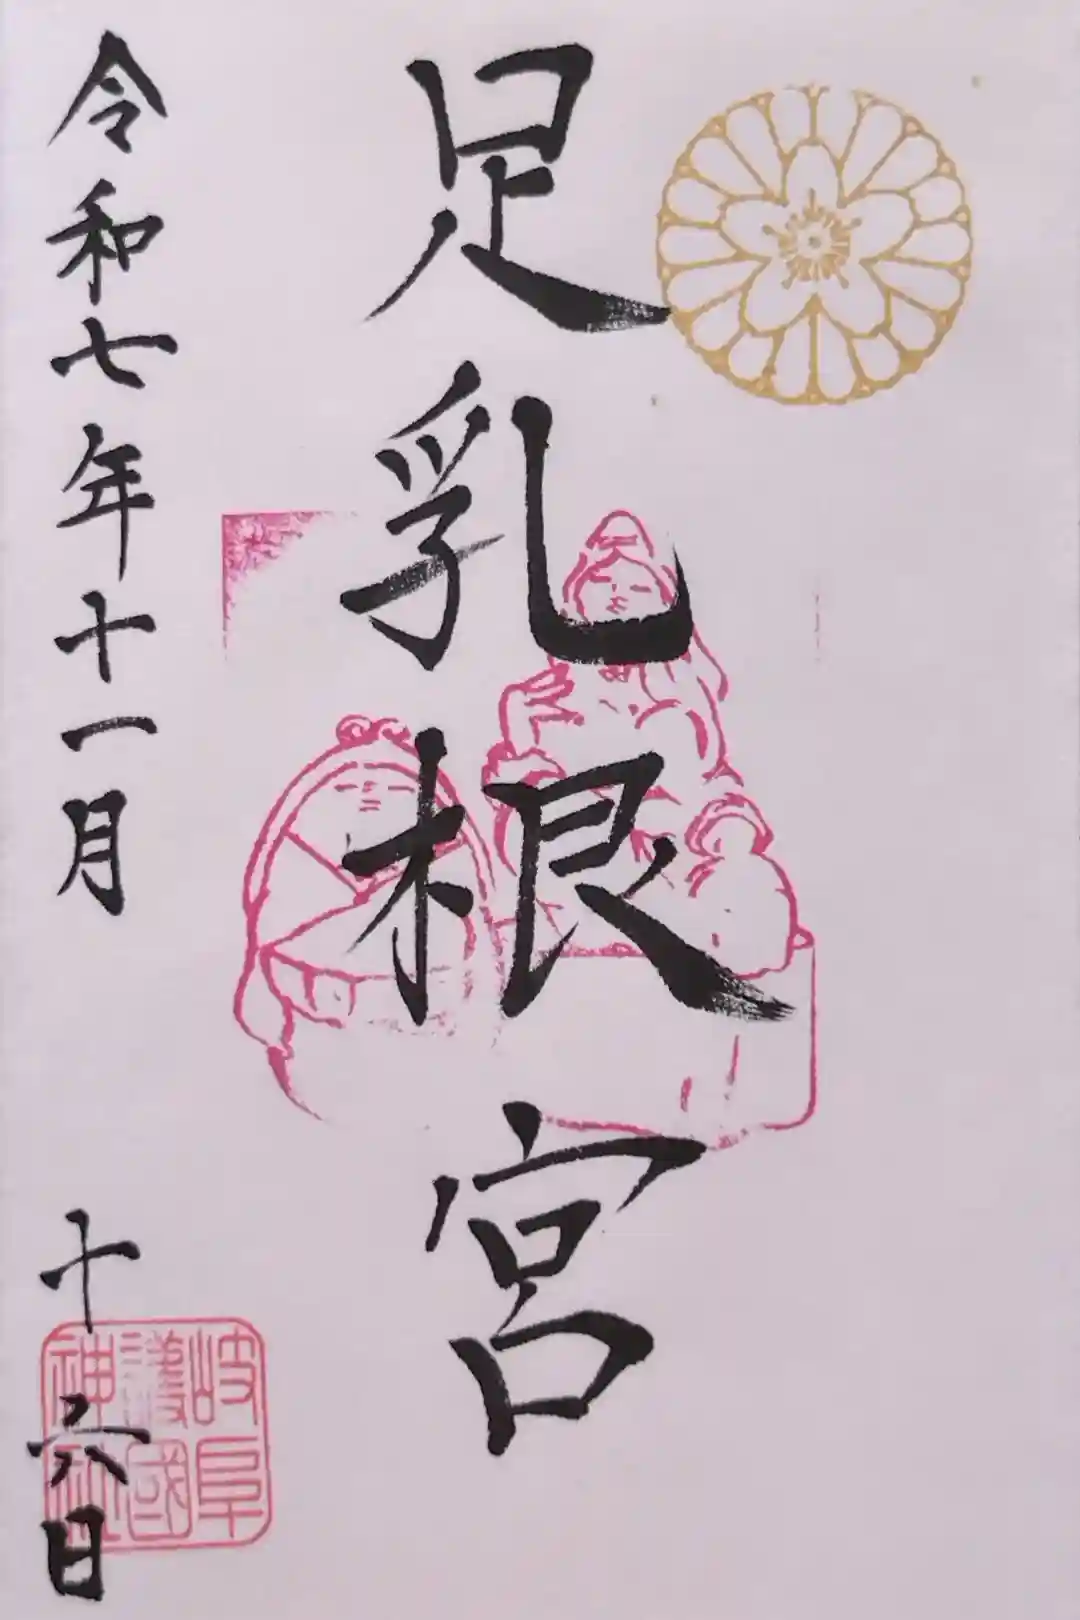 足乳根宮
令和七年十一月十六日
岐阜
護國
神社